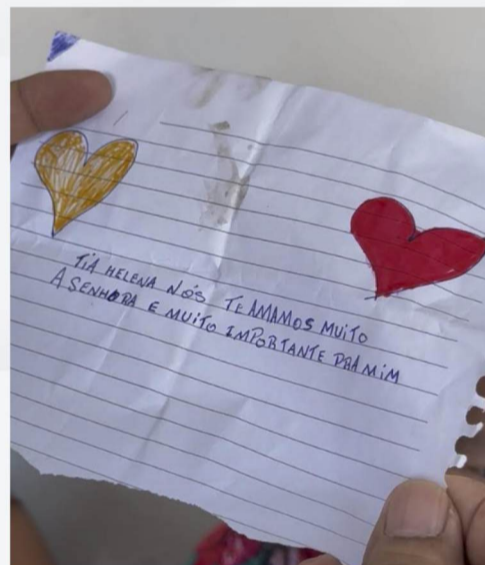 TIA HELENA NÓS TE AMAMOS MUITO
A SENHORA E MUITO IMPORTANTE PRA MIM